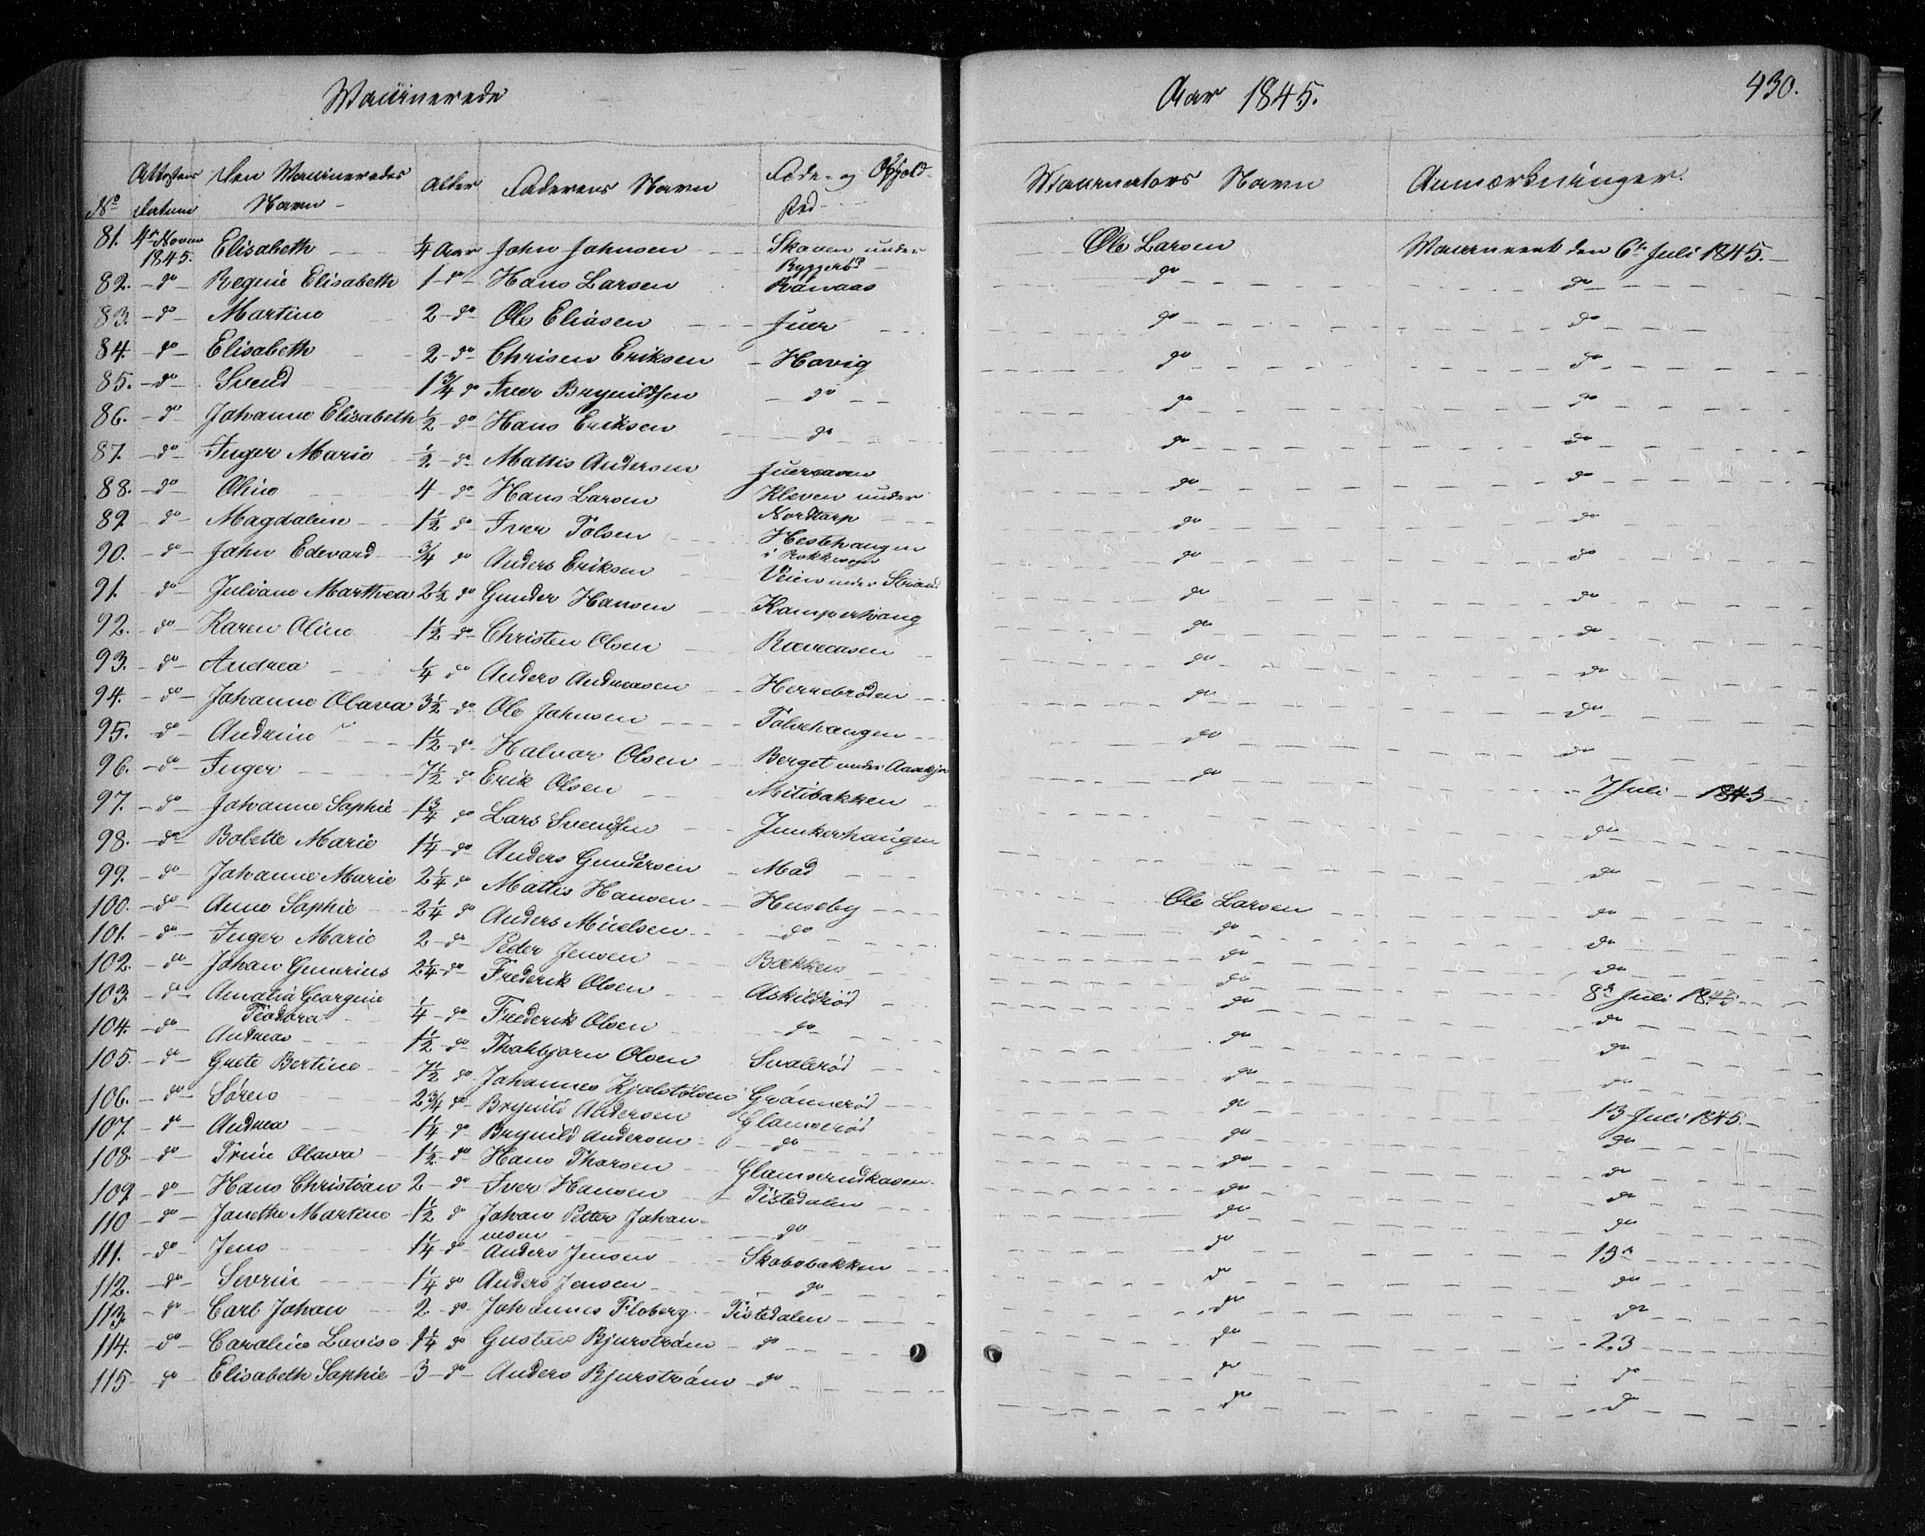 Vaccinerede Aar 1845. 430.
No Attestens Datum Den Vaccineredes Navn Alder Faderens Navn Føde- og Ophold Sted Vaccinators Navn Anmærkninger.
81. 4de Novbr 1845. Elisabeth 1/4 Aar John Johnsen Skoven under Byggerød Ole Larsen Vaccineret den 6te Juli 1845.
82. do Regine Elisabeth 1 do Hans Larsen do do
83. do Martine 2 do Ole Eliasen Juer do do
84. do Elisabeth 2 do Chrisen Eriksen Hovig do do
85. do Svend 1 3/4 do Iver Brynildsen do do do
86. do Johanne Elisabeth 1/2 do Hans Eriksen do do do
87. do Inger Marie 1/2 do Mattis Andersen do do
88. do Oline 4 do Hans Larsen Kleven under Nordtarp do do
89. do Magdalene 1 1/2 do Iver Tolsen Hestehaugen do do
90. do John Edevard 3/4 do Anders Eriksen Veien under Strand do do
91. do Juliane Marthea 2 1/2 do Gunder Hansen Kamperhaug do do
92. do Karen Oline 1 1/2 do Christen Olsen Ræveaasen do do
93. do Andrea 1/4 do Anders Andreasen Herrebrøden do do
94. do Johanne Olava 3 1/2 do Ole Johnsen Tolvehaugen do do
95. do Andrine 1 1/2 do Halvor Olsen Berget under do do
96. do Inger 7 1/2 do Erik Olsen Mitibakken do 7 Juli 1845
97. do Johanne Sophie 1 3/4 do Lars Svendsen Junkerhaugen do
98. do Bolette Marie 1 1/4 do Anders Gundersen Mad do
99. do Johanne Marie 2 1/4 do Mattis Hansen Huseby Ole Larsen do
100. do Anne Sophie 2 1/4 do Anders Nielsen do do do
101. do Inger Marie 2 do Peder Jensen Bækken do do
102. do Johan Gunerius 2 1/4 do Frederik Olsen Askildrød do 8de Juli 1845
103. do Amalia Georgine Teodora 1/4 do Frederik Olsen do do do
104. do Andreas 1 1/2 do Thorbjørn Olsen Svalerød do do
105. do Grete Bertine 7 1/2 do Johannes Kjølstølsen Grønnerød do do
106. do Søren 2 3/4 do Brynild Andersen Glamserød do 13 Juli 1845.
107. do Andrea 1 1/4 do Brynild Andersen do do do
108. do Trine Olava 1 1/2 do Hans Thorsen do do
109. do Hans Christian 2 do Iver Hansen Tistedalen do do
110 do Janethe Martine 1 1/2 do Johan Petter Johannesen do do do
111. do Jens 1 1/4 do Anders Jensen Skobobakken do 13de
112. do Severin 1 1/4 do Anders Jensen do do do
113. do Carl Johan 2 do Johannes Floberg Tistedalen do do
114. do Caroline Lovise 1 1/4 do Gustav Bjurstrøm do do 23
115 do Elisabeth Sophie 3 do Anders Bjurstrøm do do do